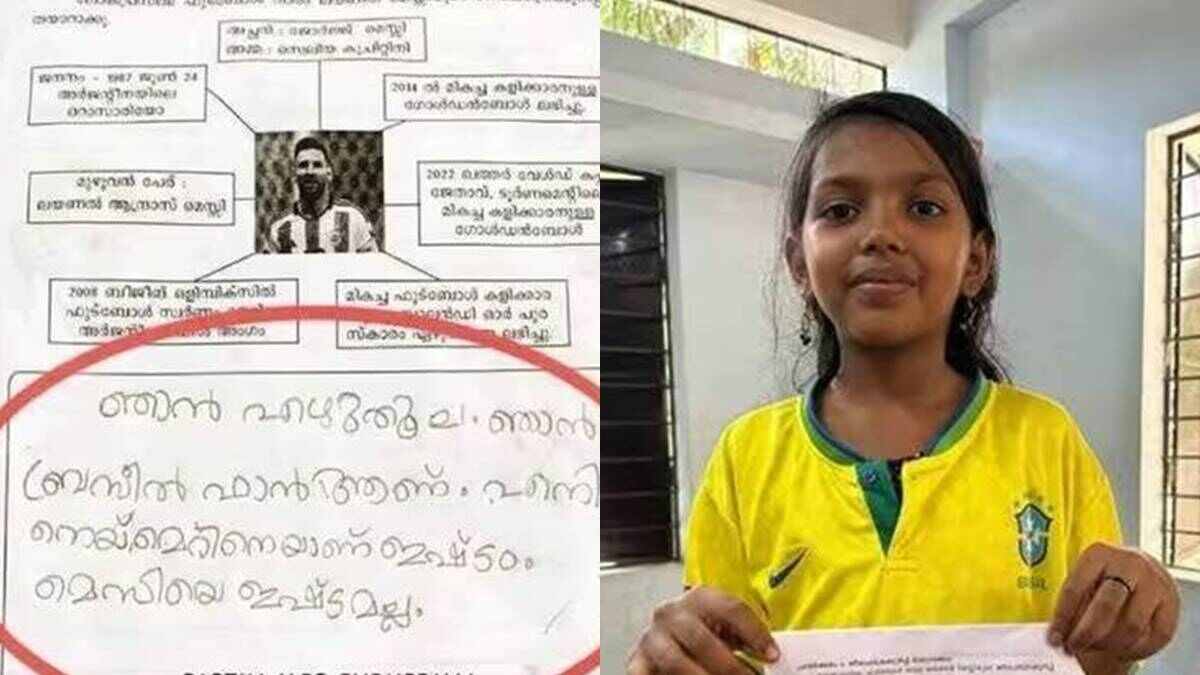 തയാറാക്കൂ.
അച്ഛൻ : ജോർജ്ജ് മെസ്സി
അമ്മ : സെലിയ കുചിറ്റിനി
ജനനം - 1987 ജൂൺ 24
അർജന്റീനയിലെ
റൊസാരിയോ
2014 ൽ മികച്ച കളിക്കാരനുള്ള
ഗോൾഡൻബോൾ ലഭിച്ചു.
മുഴുവൻ പേര് :
ലയണൽ ആന്ദ്രാസ് മെസ്സി
2022 ഖത്തർ വേൾഡ്
ജേതാവ്, ടൂർണമെന്റിലെ
മികച്ച കളിക്കാരനുള്ള
ഗോൾഡൻബോൾ
2008 ബീജിങ് ഒളിമ്പിക്സിൽ
ഫുട്ബോൾ സ്വർണം
അംഗം
മികച്ച ഫുട്ബോൾ കളിക്കാര
ഓർ പുര
സ്കാരം ലഭിച്ചു.
ഞാൻ എഴുതൂല. ഞാൻ
ബ്രസീൽ ഫാൻ ആണ്. എനി
നെയ്മെറിനെയാണ് ഇഷ്ടം.
മെസിയെ ഇഷ്ടമല്ല.